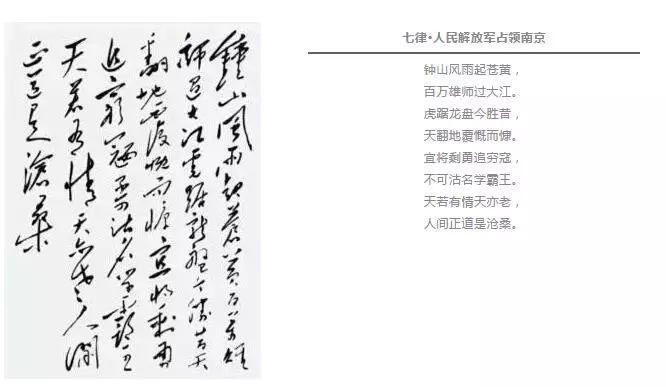 鍾山風雨起蒼黃百萬雄
師過大江虎踞龍盤今勝昔天
翻地覆慨而慷宜將剩勇
追窮寇不可沽名學霸王
天若有情天亦老人間
正道是滄桑
七律·人民解放军占领南京
钟山风雨起苍黄，
百万雄师过大江。
虎踞龙盘今胜昔，
天翻地覆慨而慷。
宜将剩勇追穷寇，
不可沽名学霸王。
天若有情天亦老，
人间正道是沧桑。